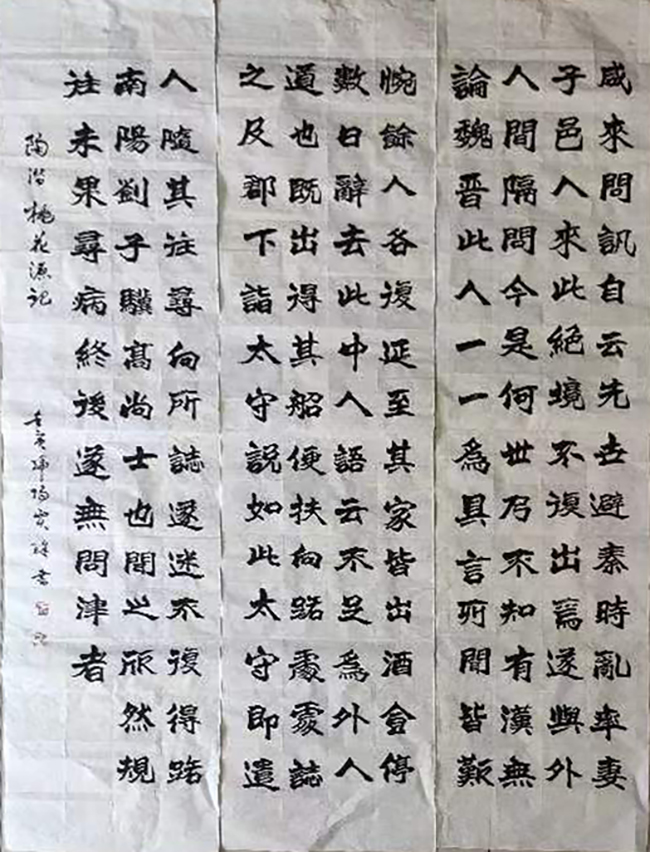 咸來問訊自云先世避秦時亂率妻
子邑人來此絕境不復出焉遂與外
人間隔問今是何世乃不知有漢無
論魏晉此人一一為具言所聞皆歎
惋餘人各復延至其家皆出酒食停
數日辭去此中人語云不足為外人
道也既出得其船便扶向路處處誌
之及郡下詣太守說如此太守即遣
人隨其往尋向所誌遂迷不復得路
南陽劉子驥高尚士也聞之欣然規
往未果尋病終後遂無問津者
陶潛桃花源記
壬寅書